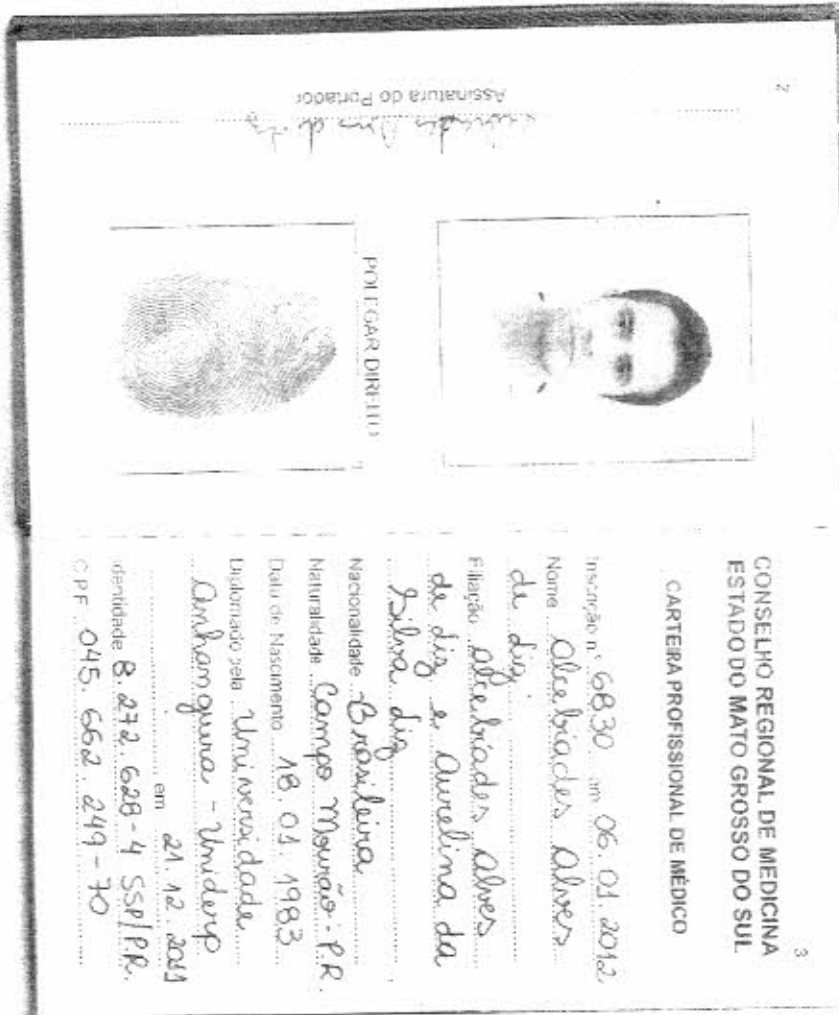 2
POLEGAR DIREITO
Assinatura do Portador
3
CONSELHO REGIONAL DE MEDICINA
ESTADO DO MATO GROSSO DO SUL
CARTEIRA PROFISSIONAL DE MÉDICO
Inscrição n.º 6830 em 06.01.2012
Nome Alcebiades Alves
de Liz.
Filiação Alcebiades Alves
de Liz e Aurelina da
Silva Liz
Nacionalidade Brasileira
Naturalidade Campo Mourão - P.R.
Data de Nascimento 18.01.1983
Diplomado pela Universidade
Anhanguera - Uniderp
em 21.12.2011
Identidade 8.272.628-4 SSP/PR.
CPF 045.662.249-70